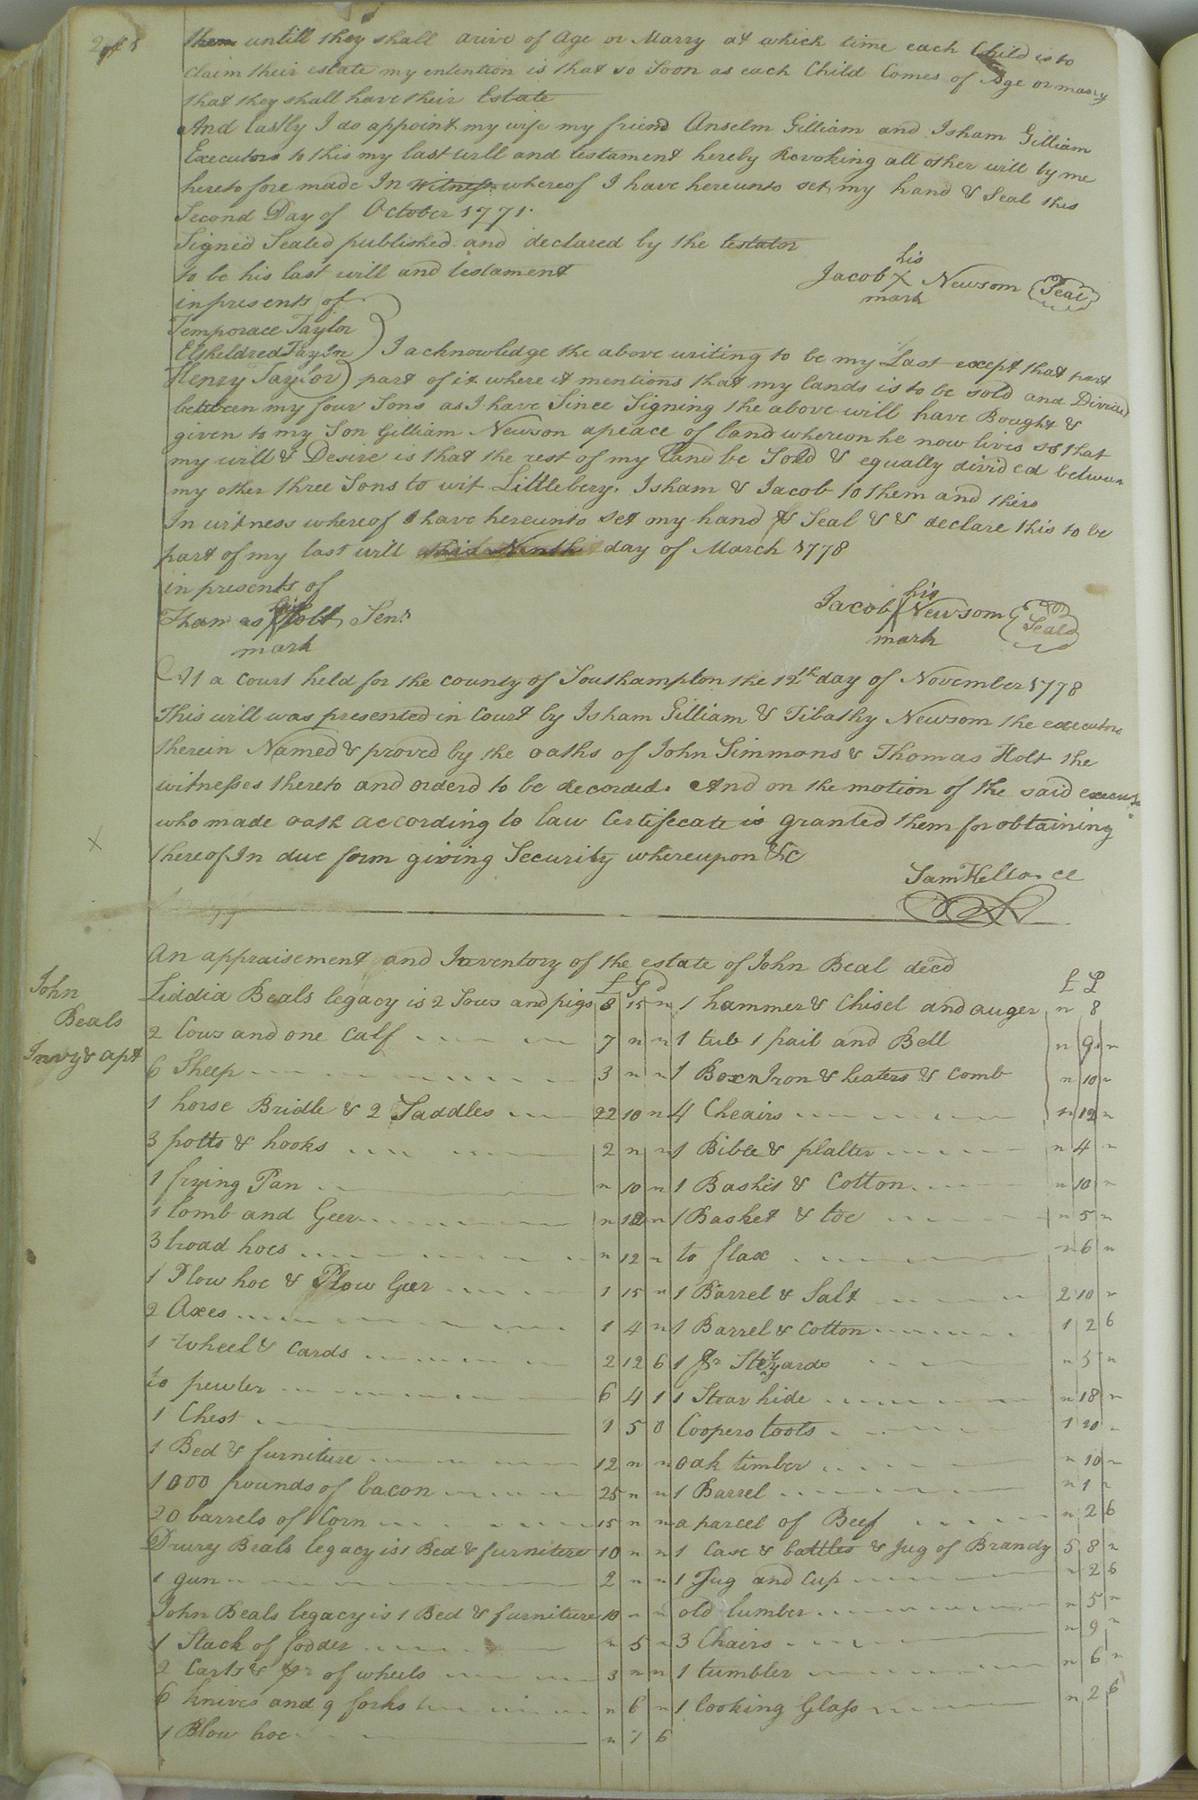 them untill they shall arive of Age or Marry at which time each Child is to
claim their estate my entention is that so Soon as each Child Comes of Age or marry
that they shall have their Estate
And lastly I do appoint my wife my friend Anselm Gilliam and Isham Gilliam
Executors to this my last will and testament hereby Revoking all other will by me
hereto fore made In Witness whereof I have hereunto set my hand & Seal this
Second Day of October 1771.
Signed Sealed published and declared by the testator
to be his last will and testament
his
Jacob X Newsom Seal
mark
in presents of
Temporace Taylor
Etheldred Taylor
Henry Taylor
I acknowledge the above writing to be my Last except that part
part of it where it mentions that my lands is to be sold and Divided
between my four Sons as I have Since Signing the above will have Bought &
given to my Son Gilliam Newson a peace of land whereon he now lives so that
my will & Desire is that the rest of my land be Sold & equally divided between
my other three Sons to wit Littlebery, Isham & Jacob to them and theirs
In witness whereof I have hereunto set my hand & Seal & & declare this to be
part of my last will this Ninth day of March 1778
in presents of
his
Thomas Holt Senr
mark
his
Jacob Newsom Seal
mark
At a Court held for the county of Southampton the 12th day of November 1778
This will was presented in Court by Isham Gilliam & Tibathy Newsom the executors
therein Named & proved by the oaths of John Simmons & Thomas Holt the
witnesses thereto and orderd to be Recorded. And on the motion of the said
who made oath according to law Certifecate is granted them for obtaining
thereof In due form giving Security whereupon &c
Sam Kello. Cl
John
Beals
Invy & apt
An appraisement and Inventory of the estate of John Beal decd
£ S D
Liddia Beals legacy is 2 Sows and pigs 8 15 "
2 Cows and one Calf 7 " "
6 Sheep 3 " "
1 horse Bridle & 2 Saddles 22 10 "
3 potts & hooks 2 " "
1 frying Pan " 10 "
1 Comb and Geer " 12 "
3 broad hoes " 12 "
1 Plow hoe & Plow Geer 1 15 "
2 Axes 1 4 "
1 Wheel & Cards 2 12 6
to pewter 6 4 1
1 Chest 1 5 0
1 Bed & furniture 12 " "
1000 pounds of bacon 25 " "
20 barrels of Corn 15 " "
Drury Beals legacy is 1 Bed & furniture 10 " "
1 gun 2 " "
John Beals legacy is 1 Bed & furniture 10 " "
1 Stack of fodder " 5 "
2 Carts & pr of wheels 3 " "
6 knives and 9 forks " 6 "
1 Blow hoe " 7 6
£
1 hammer & Chisel and auger " 8
1 tub 1 pail and Bell " 9 "
1 Box Iron & heaters & Comb " 10 "
4 Cheairs " 12 "
1 Bible & platter " 4 "
1 Baskit & Cotton " 10 "
1 Basket & toe " 5 "
to flax " 6 "
1 Barrel & Salt 2 10 "
1 Barrel & Cotton 1 2 6
1 pr Styards " 5 "
1 Stear hide " 18 "
Coopers tools 1 10 "
oak timber " 10 "
1 Barrel " 1 "
a parcel of Beef " 2 6
1 Case & bottles & Jug of Brandy 5 8 "
1 Jug and Cup " 2 6
old lumber " 5 "
3 Chairs " 9 "
1 tumbler " 6 "
1 looking Glass " 2 6